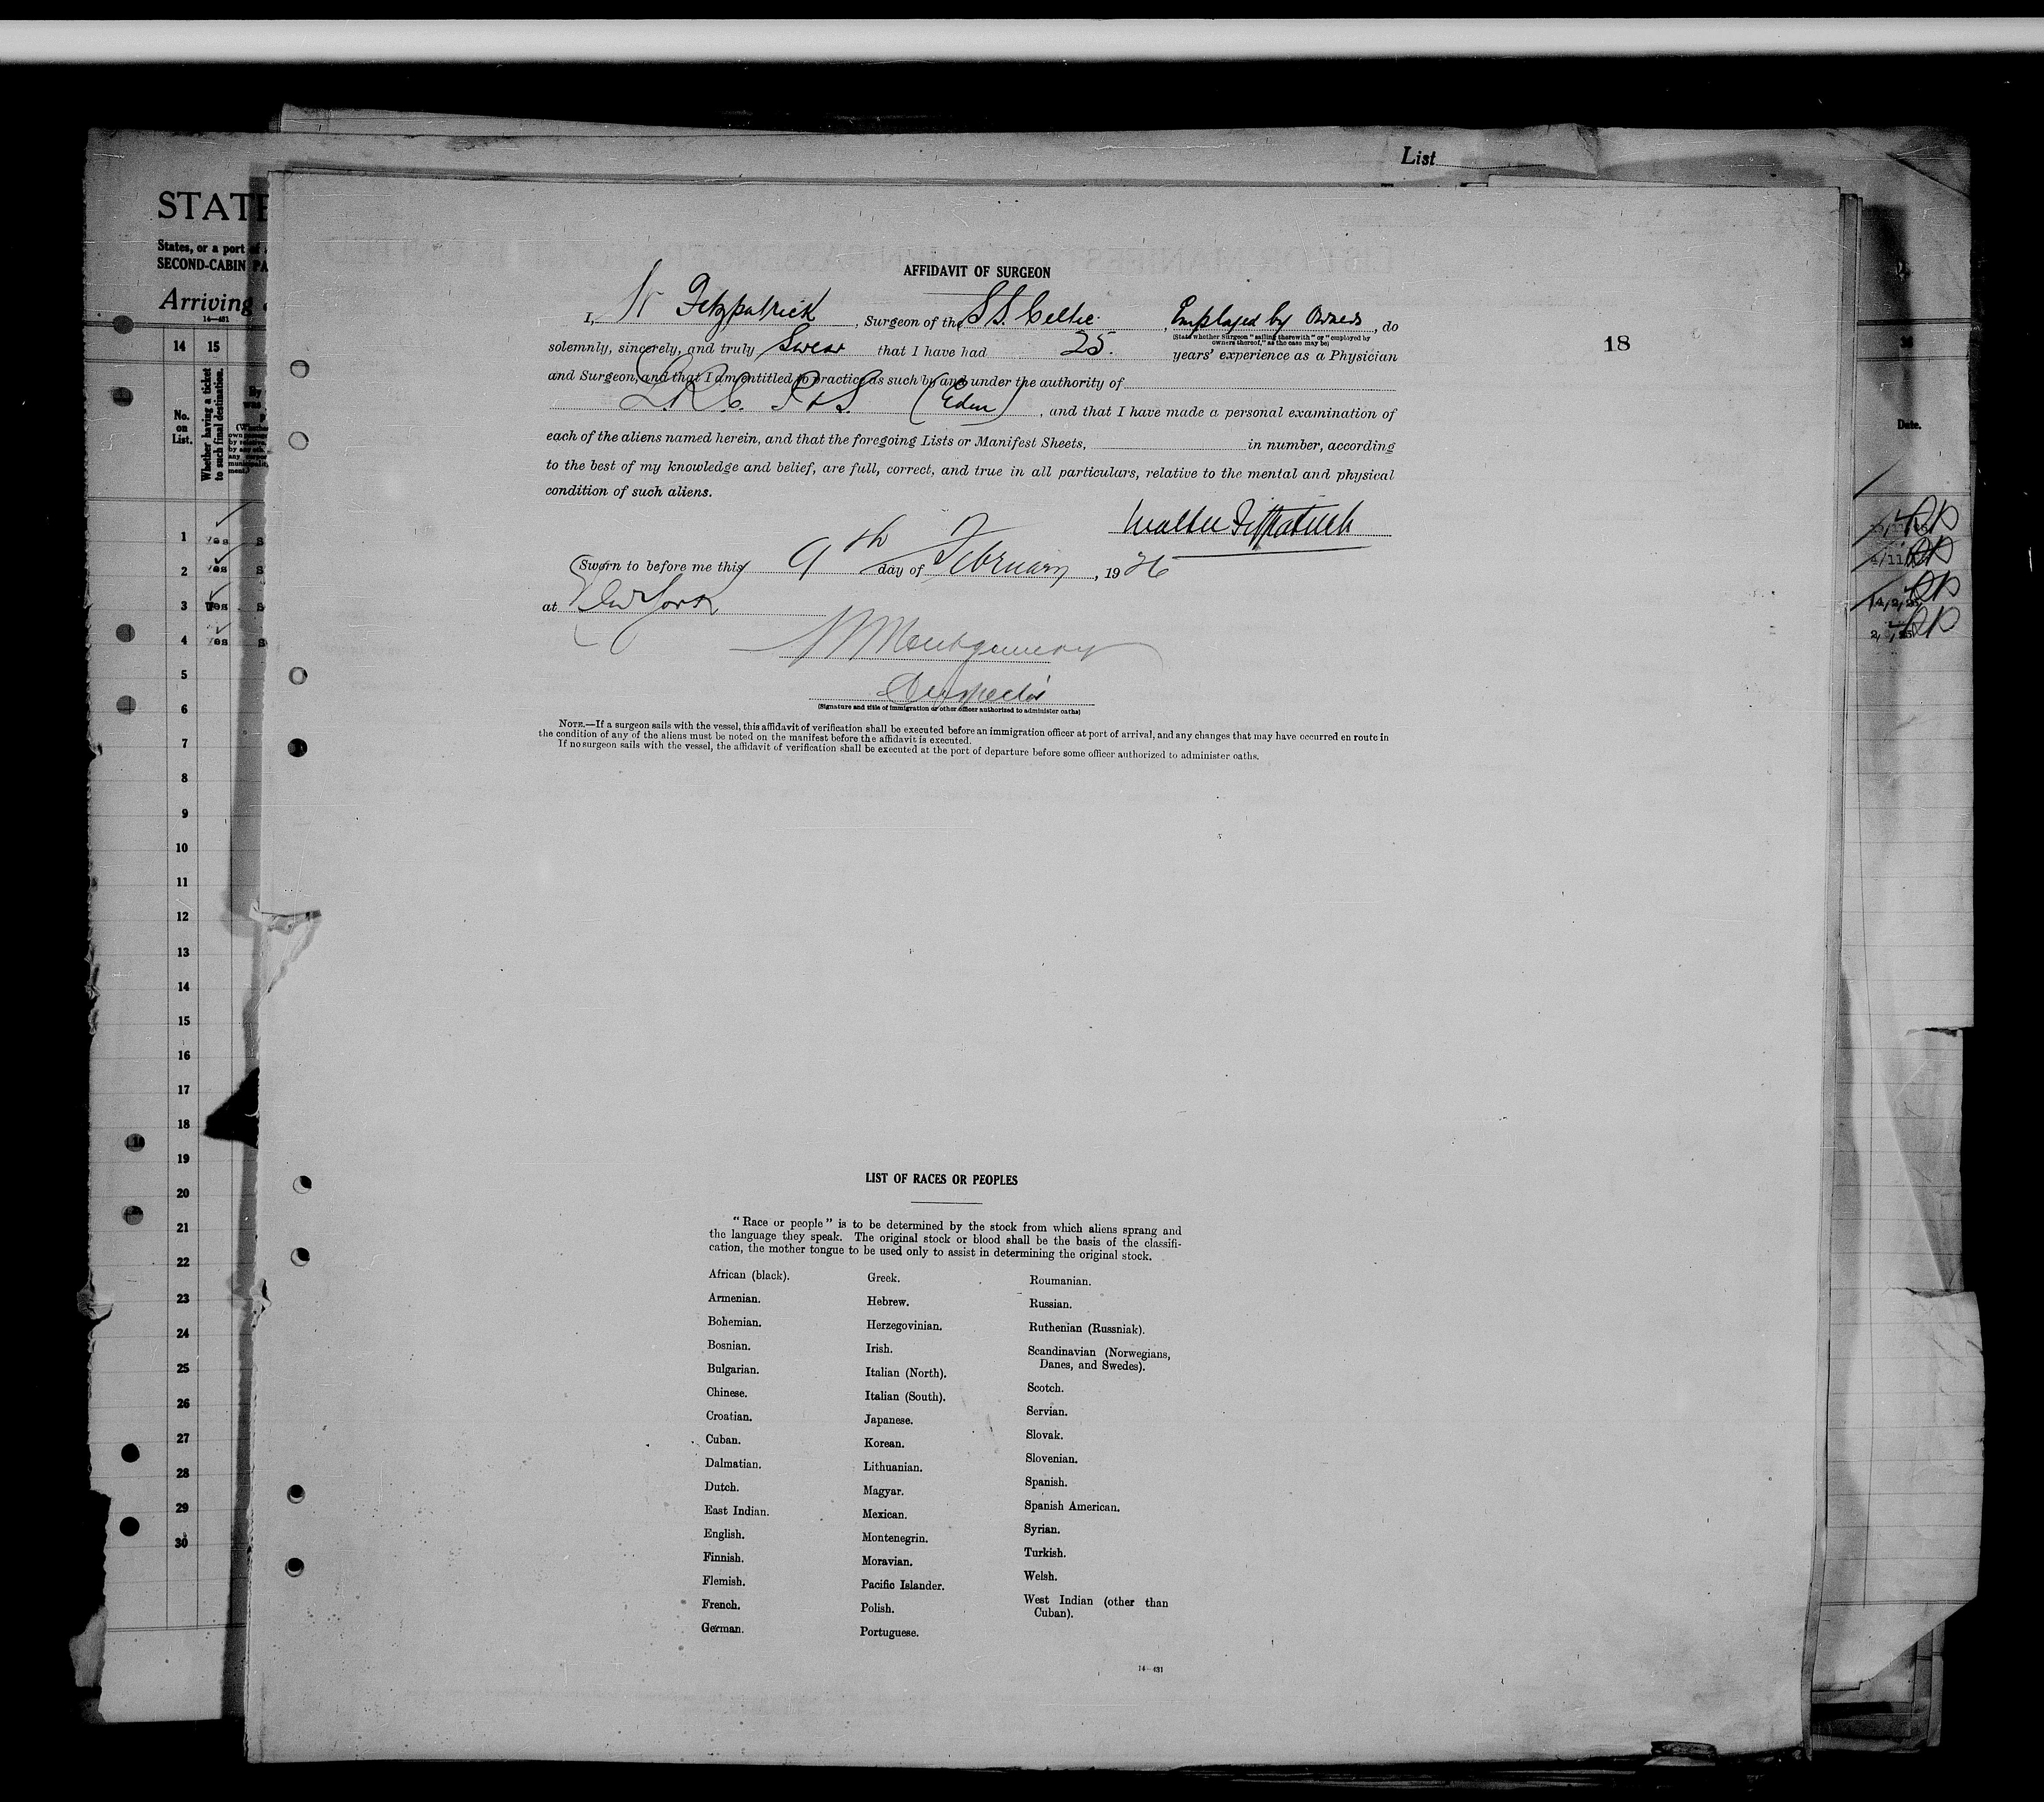 List
STATE
States, or a port of
SECOND-CABIN PA
Arriving
14—431
14 15
No. on List.
Whether having a ticket to such final destination.
By
was
1 Yes S
2 Yes S
3 Yes S
4 Yes S
5
6
7
8
9
10
11
12
13
14
15
16
17
18
19
20
21
22
23
24
25
26
27
28
29
30
AFFIDAVIT OF SURGEON
I, W Fitzpatrick, Surgeon of the SS. Celtic, Employed by Owners, do
(State whether Surgeon "sailing therewith" or "employed by
owners thereof," as the case may be)
solemnly, sincerely, and truly Swear that I have had 25. years' experience as a Physician
and Surgeon, and that I am entitled to practice as such by and under the authority of
L.R.C. P & S. (Edin), and that I have made a personal examination of
each of the aliens named herein, and that the foregoing Lists or Manifest Sheets, in number, according
to the best of my knowledge and belief, are full, correct, and true in all particulars, relative to the mental and physical
condition of such aliens.
Walter Fitzpatrick
Sworn to before me this 9th day of February, 1926
at New York
Montgomery
Inspector
(Signature and title of immigration or other officer authorized to administer oaths)
NOTE.—If a surgeon sails with the vessel, this affidavit of verification shall be executed before an immigration officer at port of arrival, and any changes that may have occurred en route in
the condition of any of the aliens must be noted on the manifest before the affidavit is executed.
If no surgeon sails with the vessel, the affidavit of verification shall be executed at the port of departure before some officer authorized to administer oaths.
18
Date.
LIST OF RACES OR PEOPLES
"Race or people" is to be determined by the stock from which aliens sprang and
the language they speak. The original stock or blood shall be the basis of the classifi-
cation, the mother tongue to be used only to assist in determining the original stock.
African (black).
Armenian.
Bohemian.
Bosnian.
Bulgarian.
Chinese.
Croatian.
Cuban.
Dalmatian.
Dutch.
East Indian.
English.
Finnish.
Flemish.
French.
German.
Greek.
Hebrew.
Herzegovinian.
Irish.
Italian (North).
Italian (South).
Japanese.
Korean.
Lithuanian.
Magyar.
Mexican.
Montenegrin.
Moravian.
Pacific Islander.
Polish.
Portuguese.
Roumanian.
Russian.
Ruthenian (Russniak).
Scandinavian (Norwegians,
Danes, and Swedes).
Scotch.
Servian.
Slovak.
Slovenian.
Spanish.
Spanish American.
Syrian.
Turkish.
Welsh.
West Indian (other than
Cuban).
14—431